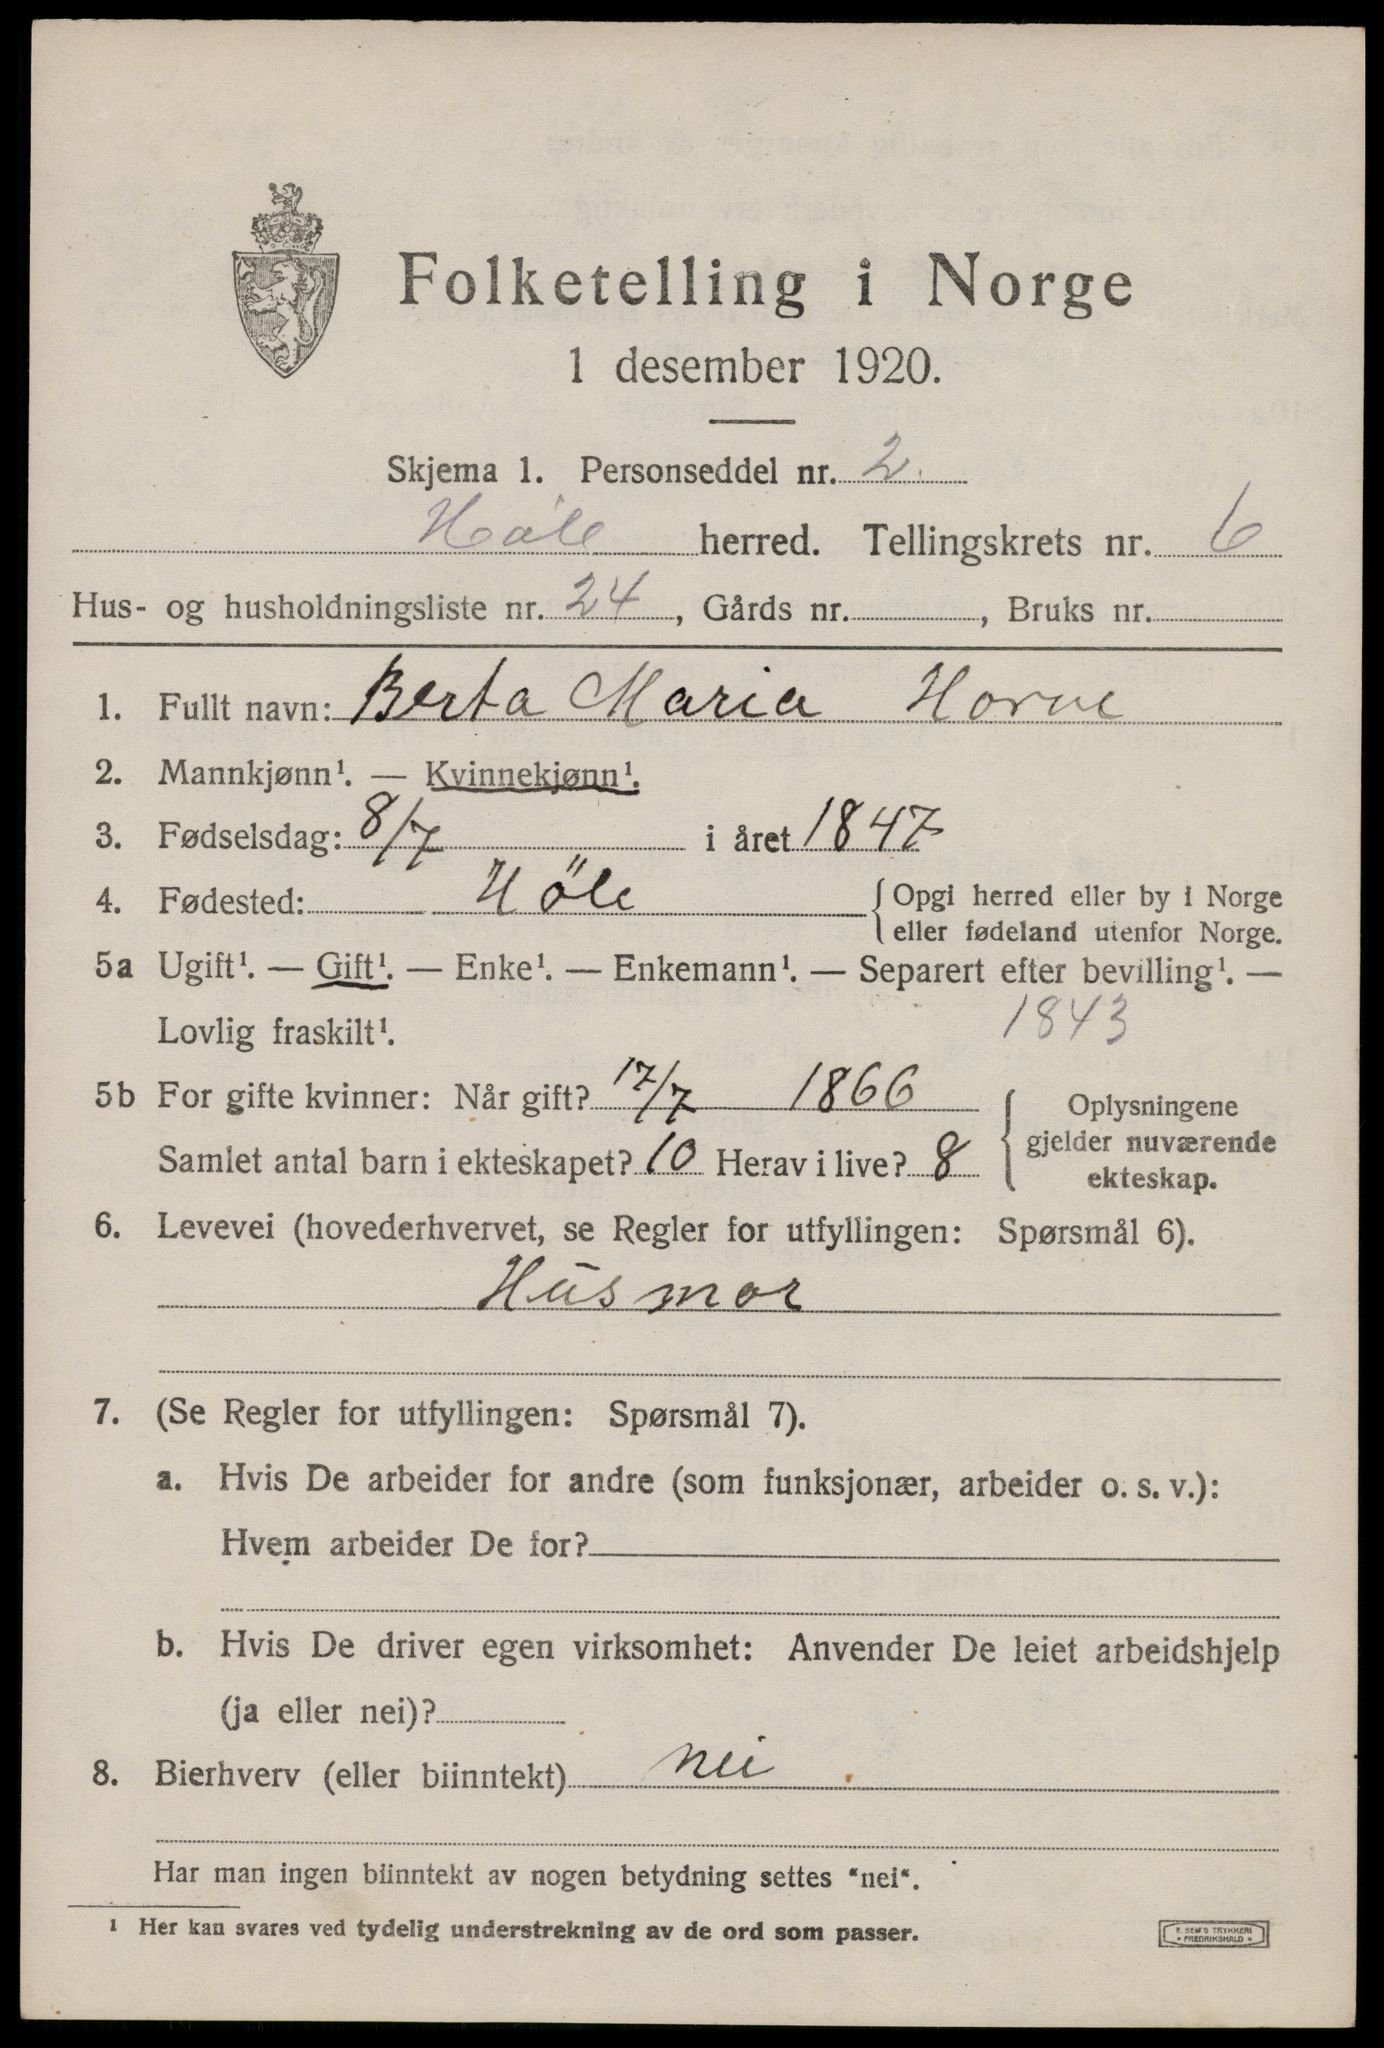 Folketelling i Norge
1 desember 1920.
Skjema 1. Personseddel nr. 2
Høle herred. Tellingskrets nr. 6
Hus- og husholdningsliste nr. 24, Gårds nr. , Bruks nr.
1. Fullt navn: Berta Maria Horve
2. Mannkjønn¹. — Kvinnekjønn¹.
3. Fødselsdag: 8/7 i året 1847
4. Fødested: Höle { Opgi herred eller by i Norge
eller fødeland utenfor Norge.
5a Ugift¹. — Gift¹. — Enke¹. — Enkemann¹. — Separert efter bevilling¹. —
Lovlig fraskilt¹. 1843
5b For gifte kvinner: Når gift? 17/7 1866 { Oplysningene
gjelder nuværende
ekteskap.
Samlet antal barn i ekteskapet? 10 Herav i live? 8
6. Levevei (hovederhvervet, se Regler for utfyllingen: Spørsmål 6).
Husmor
7. (Se Regler for utfyllingen: Spørsmål 7).
a. Hvis De arbeider for andre (som funksjonær, arbeider o. s. v.):
Hvem arbeider De for?
b. Hvis De driver egen virksomhet: Anvender De leiet arbeidshjelp
(ja eller nei)?
8. Bierhverv (eller biinntekt) nei
Har man ingen biinntekt av nogen betydning settes “nei“.
¹ Her kan svares ved tydelig understrekning av de ord som passer.
E. SEM'S TRYKKERI
• FREDRIKSHALD •